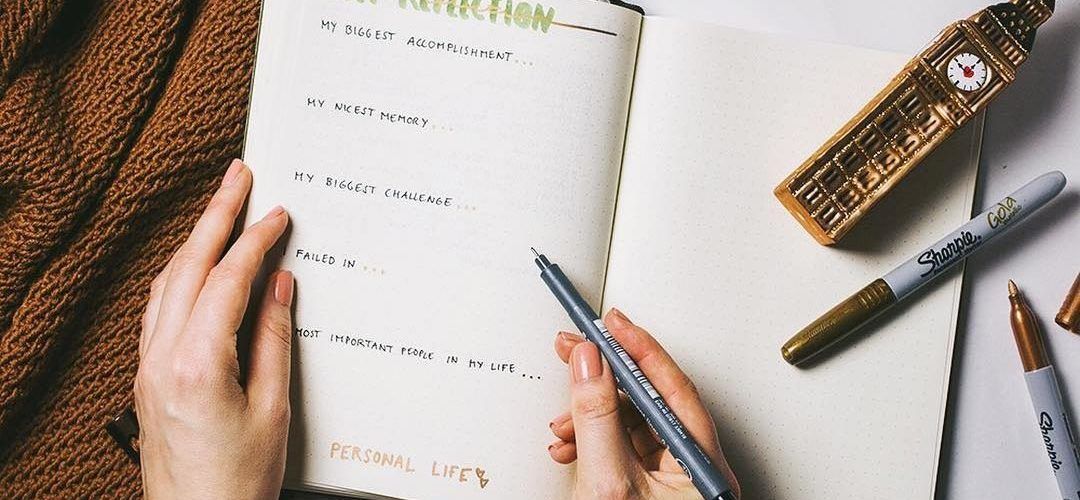 REFLECTION
MY BIGGEST ACCOMPLISHMENT...
MY NICEST MEMORY...
MY BIGGEST CHALLENGE...
FAILED IN...
MOST IMPORTANT PEOPLE IN MY LIFE...
PERSONAL LIFE
Sharpie. Gold
Sharpie.